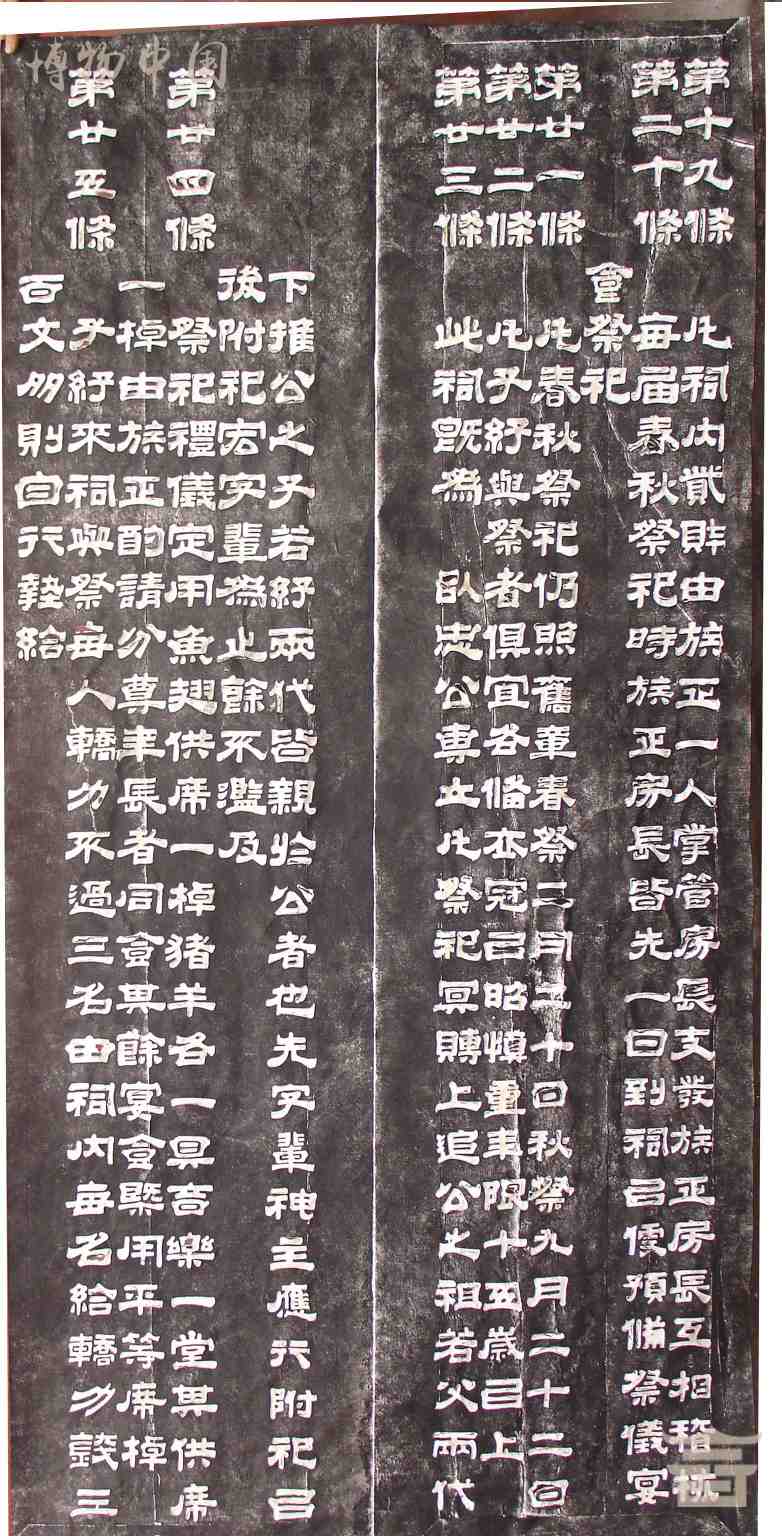 博物中国
第十九條 凡祠内貲財由族正一人掌管房長支發族正房長互相稽核
第二十條 每届春秋祭祀時族正房長皆先一日到祠以便預備祭儀宴
會祭祀
第廿一條 凡春秋祭祀仍照舊章春祭二月二十日秋祭九月二十二日
第廿二條 凡子孫與祭者俱宜各脩衣冠以昭慎重年限十五歲以上
第廿三條 此祠既為 臥志公專立凡祭祀冥賻上追公之祖若父兩代
下推公之子若孫兩代皆親於公者也先字輩神主應行附祀以
後附祀宏字輩為止餘不濫及
第廿四條 祭祀禮儀定用魚翅供席一棹猪羊各一具音樂一堂其供席
一棹由族正酌請分尊年長者同食其餘宴食槩用平等席棹
第廿五條 子孫來祠與祭每人轎力不過三名由祠内每名給轎力錢三
百文多則自行墊給